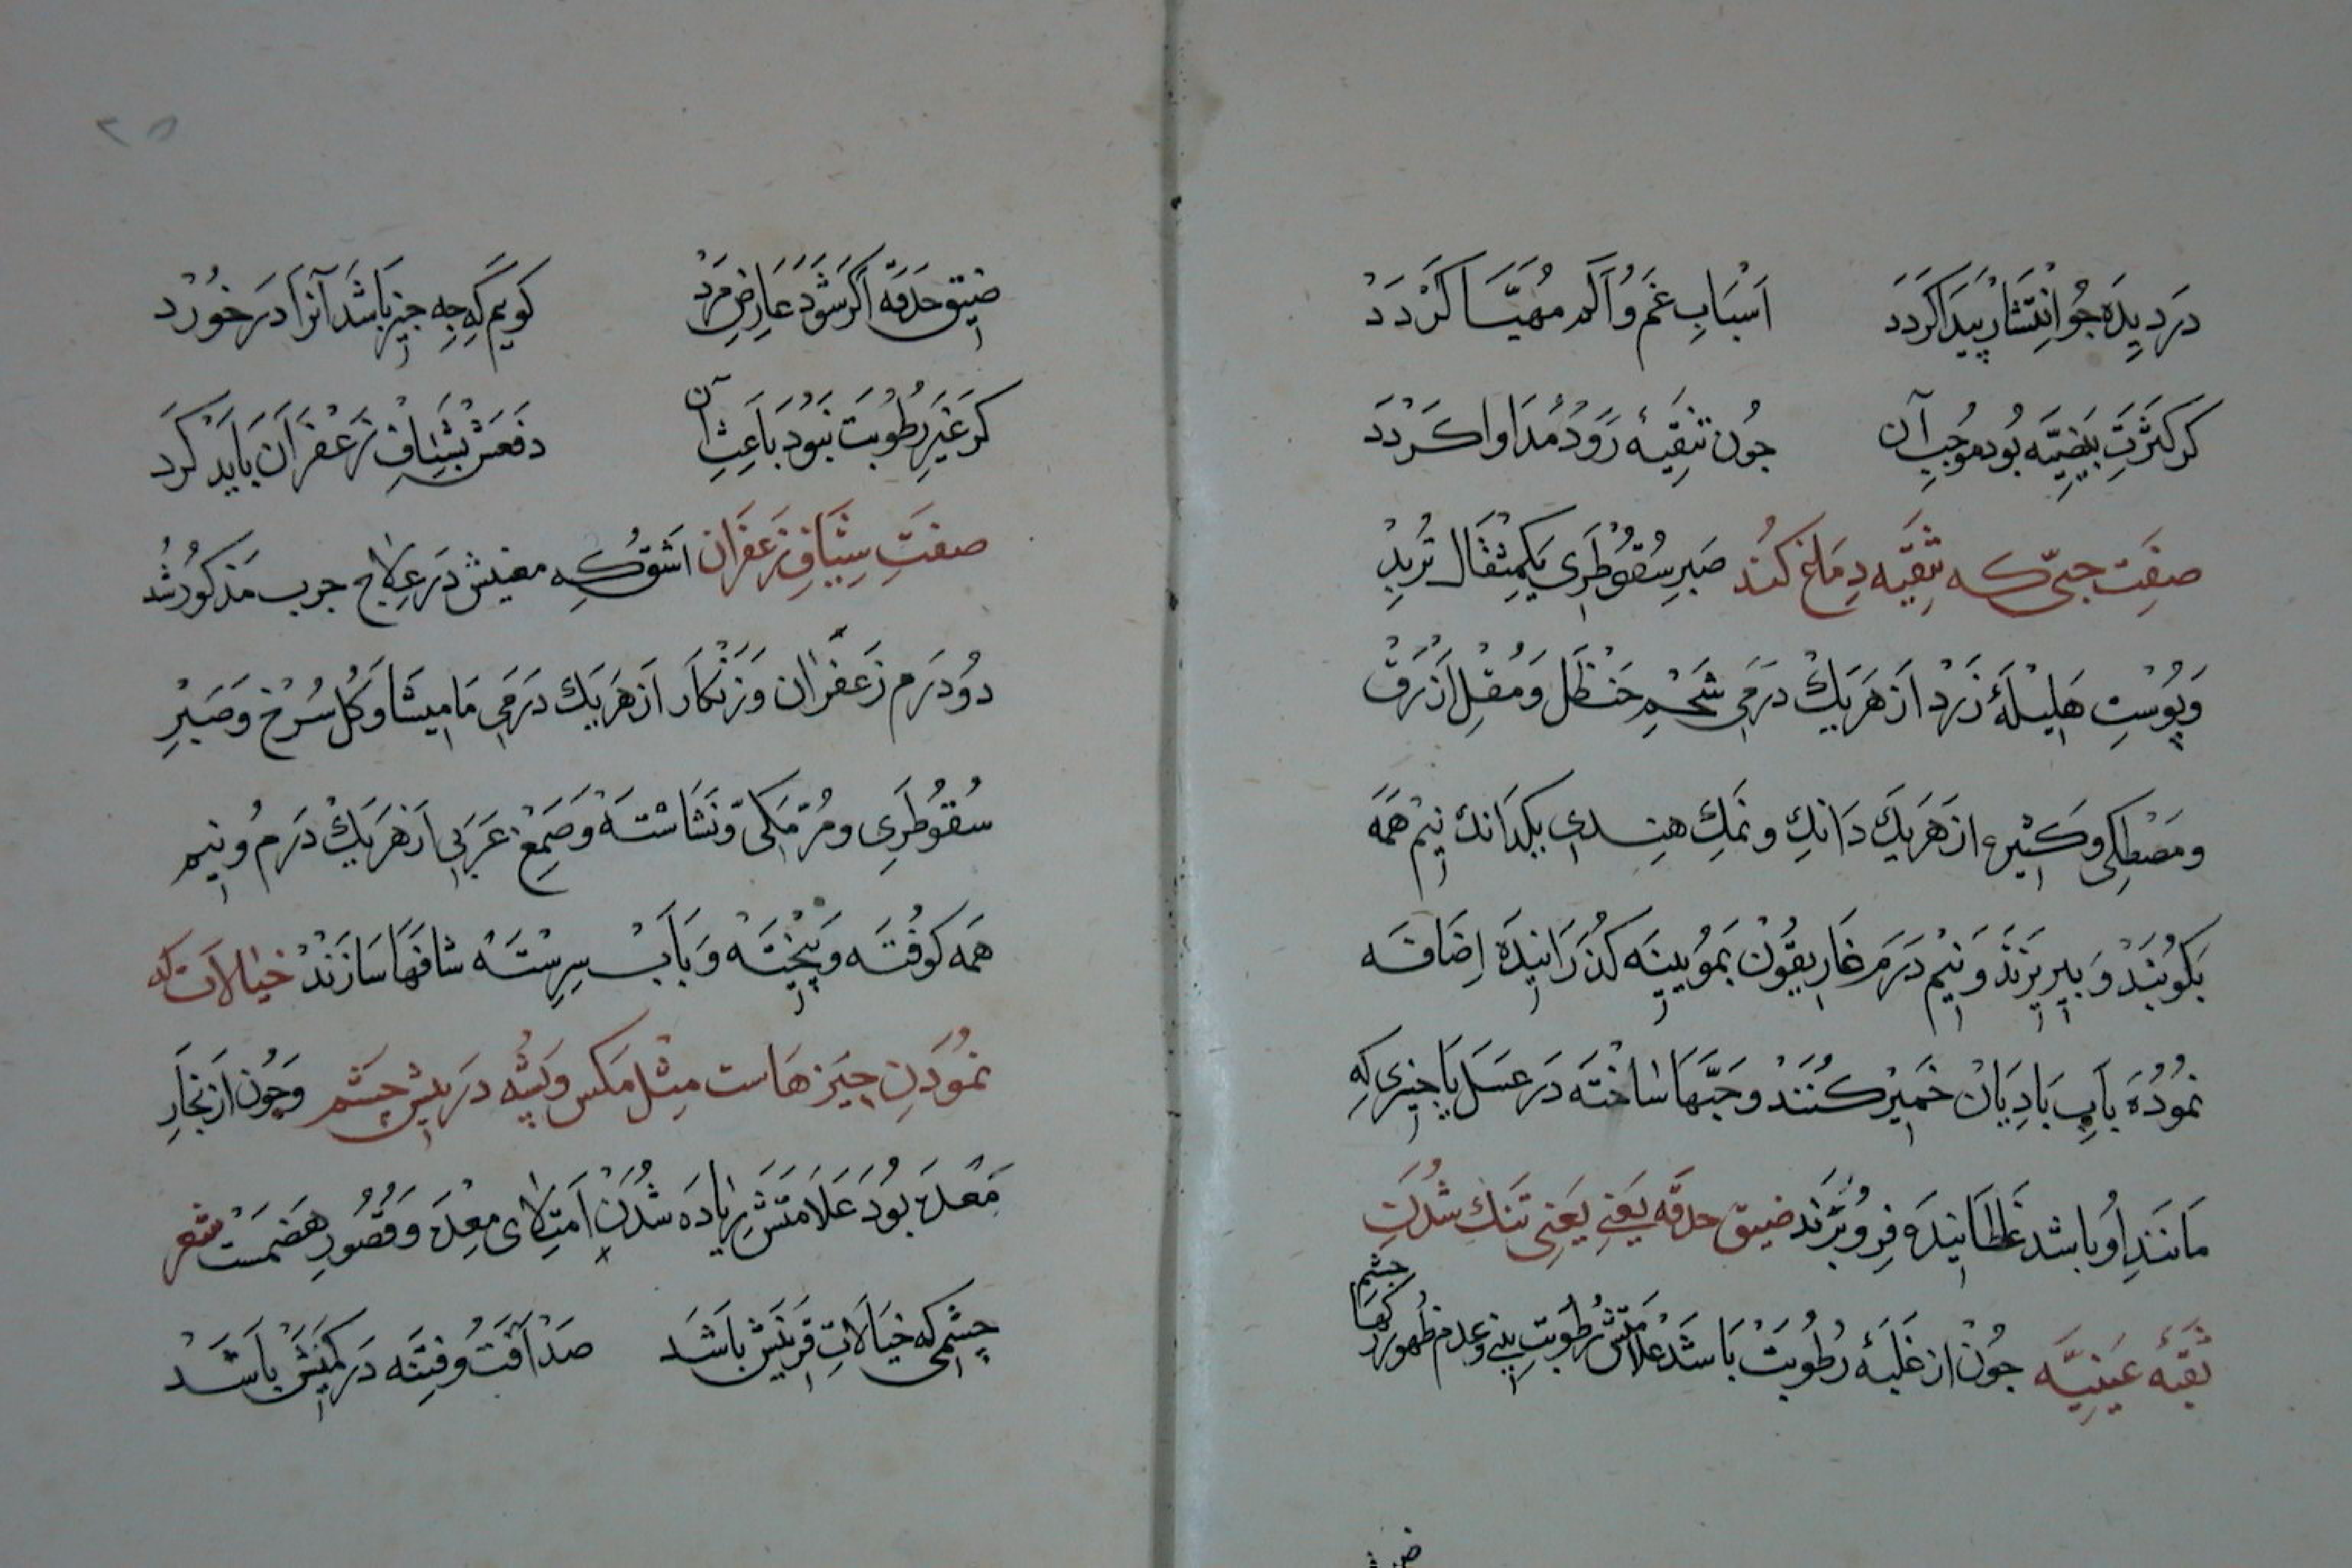 در دیده جو انتشار پیدا کردد اسباب غم و الم مهیا کردد
کر کثرت بیضیه بود موجب آن جون تنقیهٔ رود مداوا کردد
صفت حبی که تنقیه دماغ کند صبر سقوطری یکمثقال تربد
وپوست هلیلهٔ زرد از هر یک درمی شحم حنظل و مقل ازرق
ومصطکی وکثیره از هر یک دانک و نمک هندی یکدانک نیم همه
بکوبند و بیپزند و نیم درم غاریقون بمویینه کذرانیده اضافه
نموده باب بادیان خمیر کنند و حبها ساخته در عسل یا جیزی که
مانند او باشد غلطانیده فرو برند ضیق حدقه یعنی یعنی تنک شدن
ثقبهٔ عینیه جون از غلبهٔ رطوبت باشد علامتش رطوبت بینی وعدم ظهور رکهاء
جشم
ضیق حدقه اکر شود عارض مرد کویم که جه جیز باشد آنرا در خورد
کر غیر رطوبت نبود باعث آن دفعش بشیاف زعفران باید کرد
صفت شیاف زعفران اشق که معنیش در علاج جرب مذکور شد
دو درم زعفران و زنکار از هر یک درمی مامیشا و کل سرخ و صبر
سقوطری و مر مکی و نشاسته و صمغ عربی از هر یک درم و نیم
همه کوفته و پیخته و باب سرسته شافها سازند خیالات که
نمودن جیزهاست مثل مکس و پشه در پیش چشم وجون از بخار
معده بود علامتش زیاده شدن امتلای معده و قصور هضمست شعر
چشمی که خیالات قرینش باشد صد آفت و فتنه در کمینش باشد